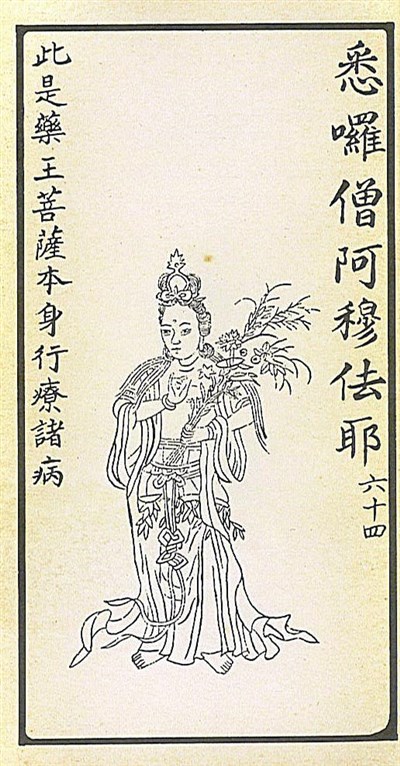 悉囉僧阿穆佉耶
六十四
此是藥王菩薩本身行療諸病